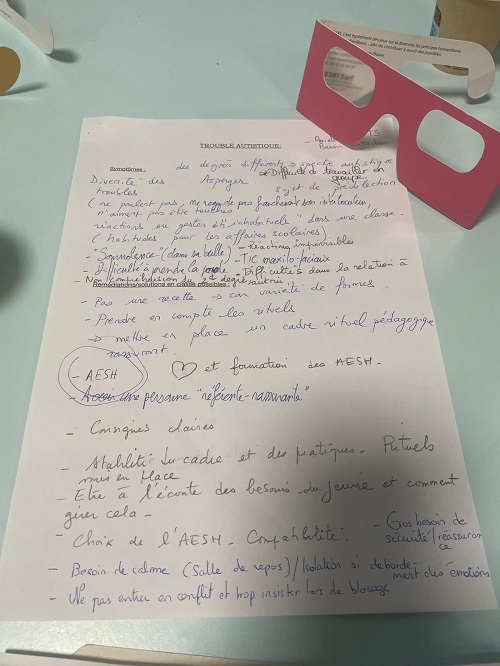 TROUBLE AUTISTIQUE:
Symptômes:
des degrés différents → spectre autistique
Diversité des troubles
Asperger
Difficulté de travailler en groupe
sujet de prédilection
(ne parlent pas, ne regarde pas franchement son interlocuteur,
n'aiment pas être touchés
réactions ou gestes dits "inhabituels" dans une classe
(habitudes pour les affaires scolaires)
- Réactions imprévisibles
- "Somnolence" (dans sa bulle)
- TIC maxilo-faciaux
- Difficulté à prendre la parole
- Difficultés dans la relation à autrui
- Non compréhension du 2nd degré
Remédiations/solutions en classe possibles:
- Pas une recette → car variété de formes
- Prendre en compte les rituels
→ mettre en place un cadre rituel pédagogique
rassurant
- AESH
♡ et formation des AESH.
- une personne "référente-rassurante"
- Consignes claires
- Stabilité du cadre et des pratiques. Rituels
mis en place
- Etre à l'écoute des besoins du jeune et comment
gérer cela.
- Choix de l'AESH. Compatibilité.
- Gros besoin de
sécurité/réassurance
- Besoin de calme (Salle de repos)/Isolation si débordement des émotions
- Ne pas entrer en conflit et trop insister lors de blocage